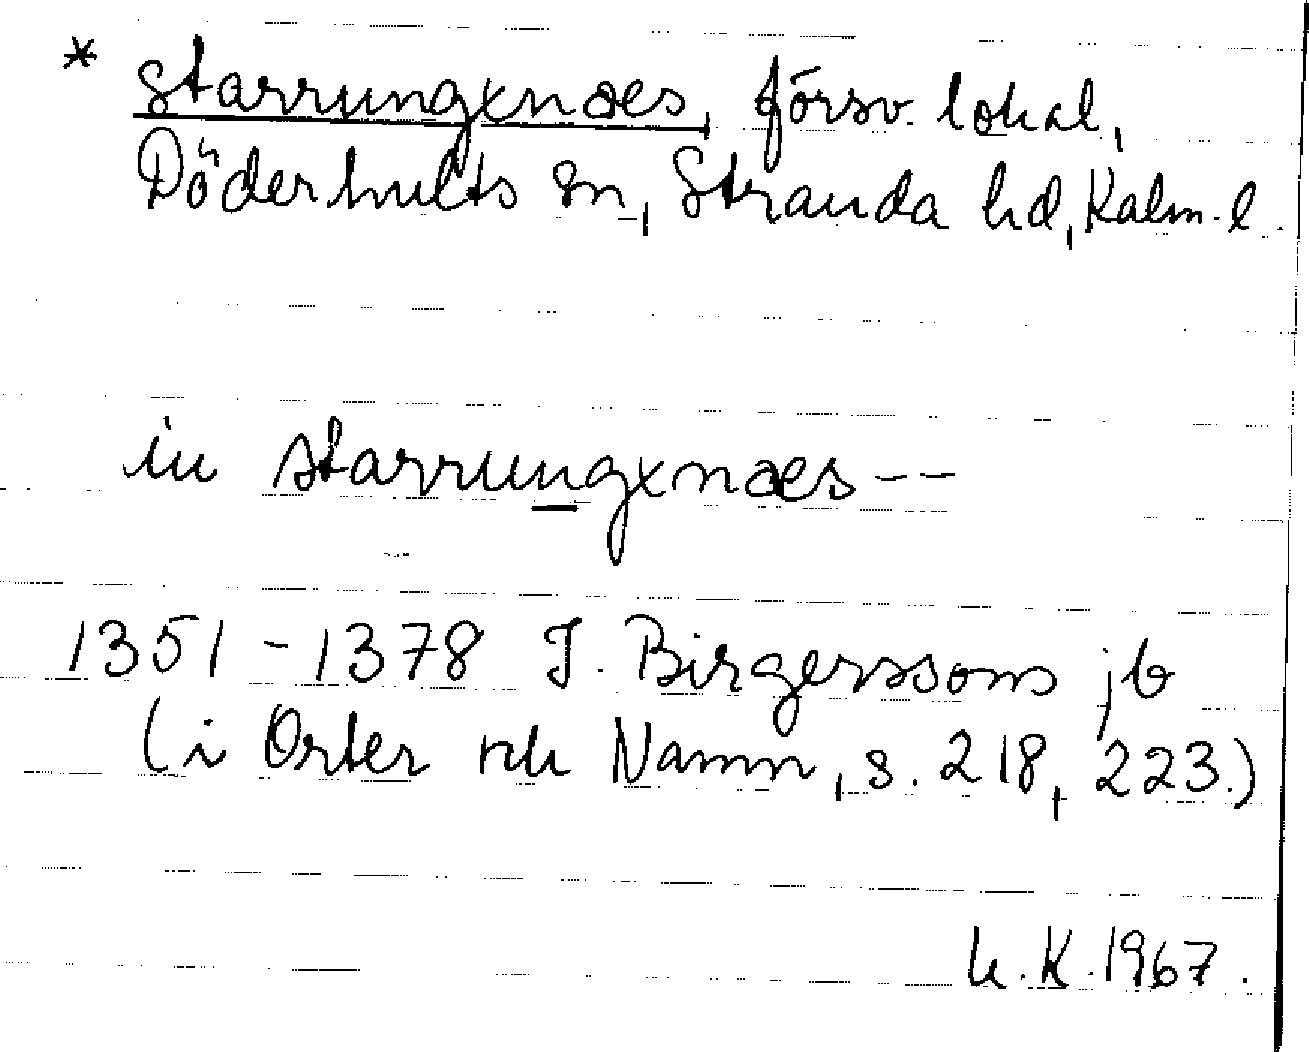 * starrungxnaes, försv. lokal,
Döderhults sn, Stranda hd, Kalm. l.
in starrungxnaes --
1351-1378 J. Birgerssons jb
(i Orter och Namn, s. 218, 223.)
K. 1967.